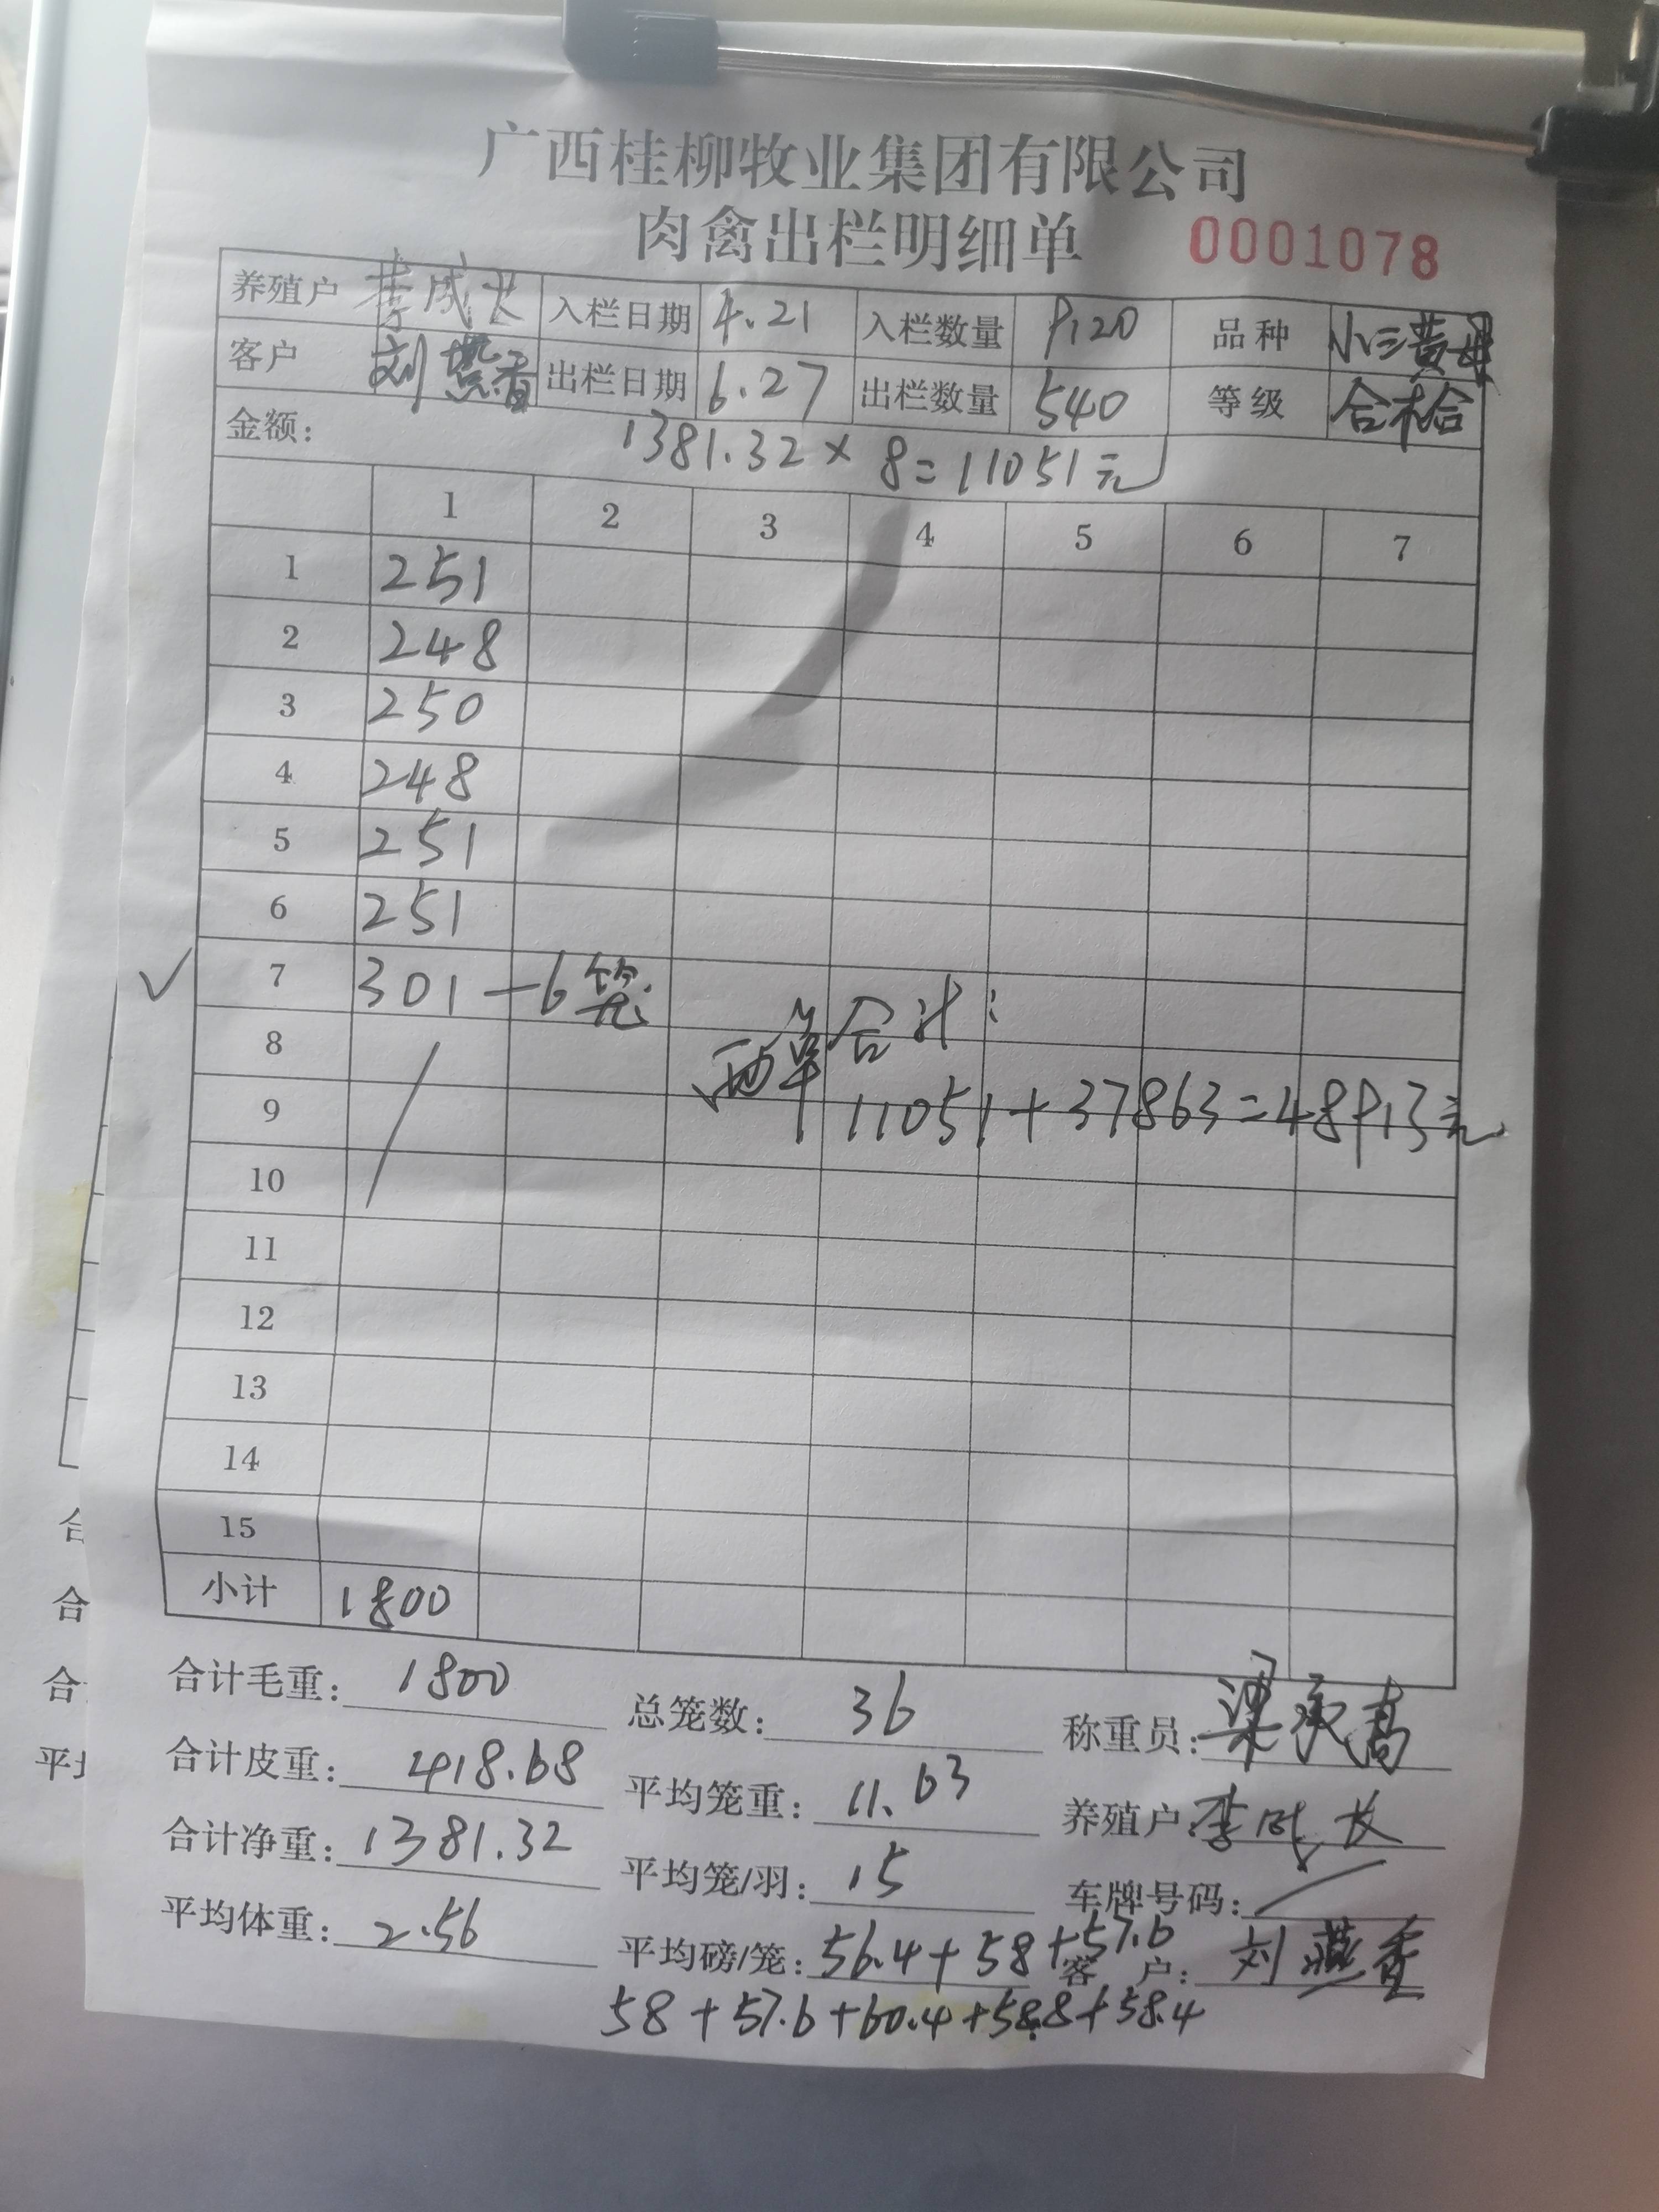 广西桂柳牧业集团有限公司
肉禽出栏明细单 0001078
养殖户 李成长 入栏日期 4.21 入栏数量 9120 品种 小三黄母
客户 刘燕香 出栏日期 6.27 出栏数量 540 等级 合格
金额: 1381.32×8=11051元
1 2 3 4 5 6 7
1 251
2 248
3 250
4 248
5 251
6 251
✓ 7 301—6笼
8 两单合计:
9 11051+37863=48913元
10
11
12
13
14
15
小计 1800
合计毛重: 1800 总笼数: 36 称重员: 梁承高
合计皮重: 418.68 平均笼重: 11.63 养殖户 李成长
合计净重: 1381.32 平均笼/羽: 15 车牌号码:
平均体重: 2.56 平均磅/笼: 56.4+58+57.6 客户: 刘燕香
58+57.6+60.4+58.8+58.4
合
合
合
平均